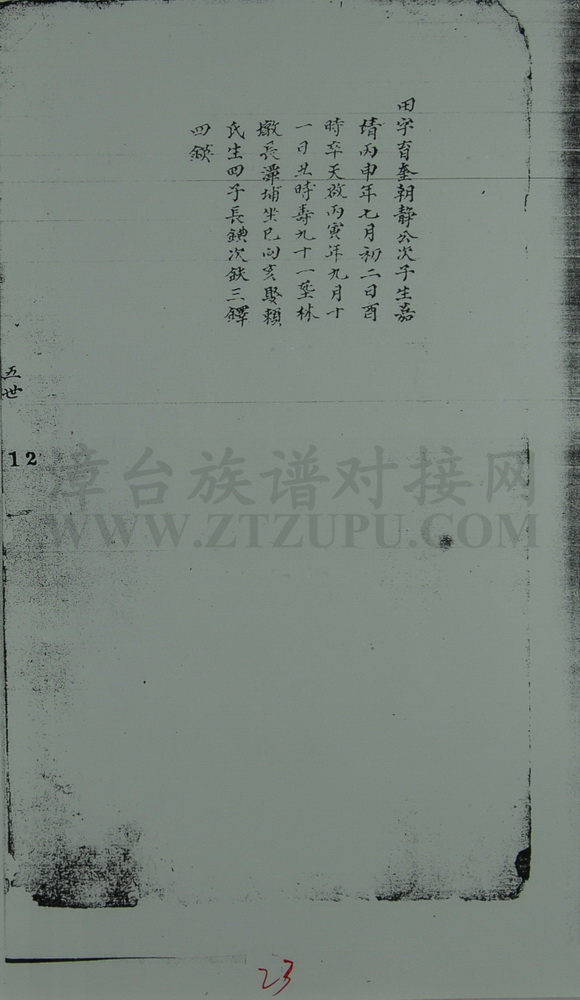 田字育奎朝靜公次子生嘉
靖丙申年七月初二日酉
時卒天啟丙寅年九月十
一日丑時壽九十一葬林
墩長潭埔坐巳向亥娶賴
氏生四子長錪次鈇三鐸
四鋑
五世
12
漳台族谱对接网
WWW.ZTZUPU.COM
23